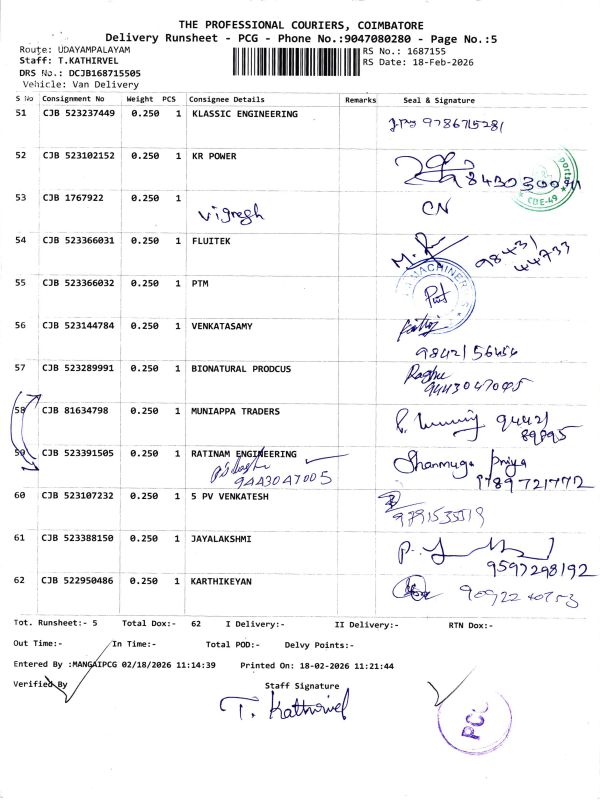 THE PROFESSIONAL COURIERS, COIMBATORE
Delivery Runsheet - PCG - Phone No.:9047080280 - Page No.:5
Route: UDAYAMPALAYAM
RS No.: 1687155
Staff: T.KATHIRVEL
RS Date: 18-Feb-2026
DRS No.: DCJB168715505
Vehicle: Van Delivery
S No Consignment No Weight PCS Consignee Details Remarks Seal & Signature
51 CJB 523237449 0.250 1 KLASSIC ENGINEERING
9786715281
52 CJB 523102152 0.250 1 KR POWER
CBE-49
53 CJB 1767922 0.250 1
Vignesh CN
54 CJB 523366031 0.250 1 FLUITEK
98431
44733
55 CJB 523366032 0.250 1 PTM
MACHINER
56 CJB 523144784 0.250 1 VENKATASAMY
57 CJB 523289991 0.250 1 BIONATURAL PRODCUS
Raghu
58 CJB 81634798 0.250 1 MUNIAPPA TRADERS
94421
89895
59 CJB 523391505 0.250 1 RATINAM ENGINEERING
9443047005
Shanmuga Priya
9789721772
60 CJB 523107232 0.250 1 S PV VENKATESH
61 CJB 523388150 0.250 1 JAYALAKSHMI
9597298192
62 CJB 522950486 0.250 1 KARTHIKEYAN
Tot. Runsheet:- 5 Total Dox:- 62 I Delivery:- II Delivery:- RTN Dox:-
Out Time:- In Time:- Total POD:- Delvy Points:-
Entered By :MANGAIPCG 02/18/2026 11:14:39 Printed On: 18-02-2026 11:21:44
Verified By Staff Signature
T. Kathirvel
PCG